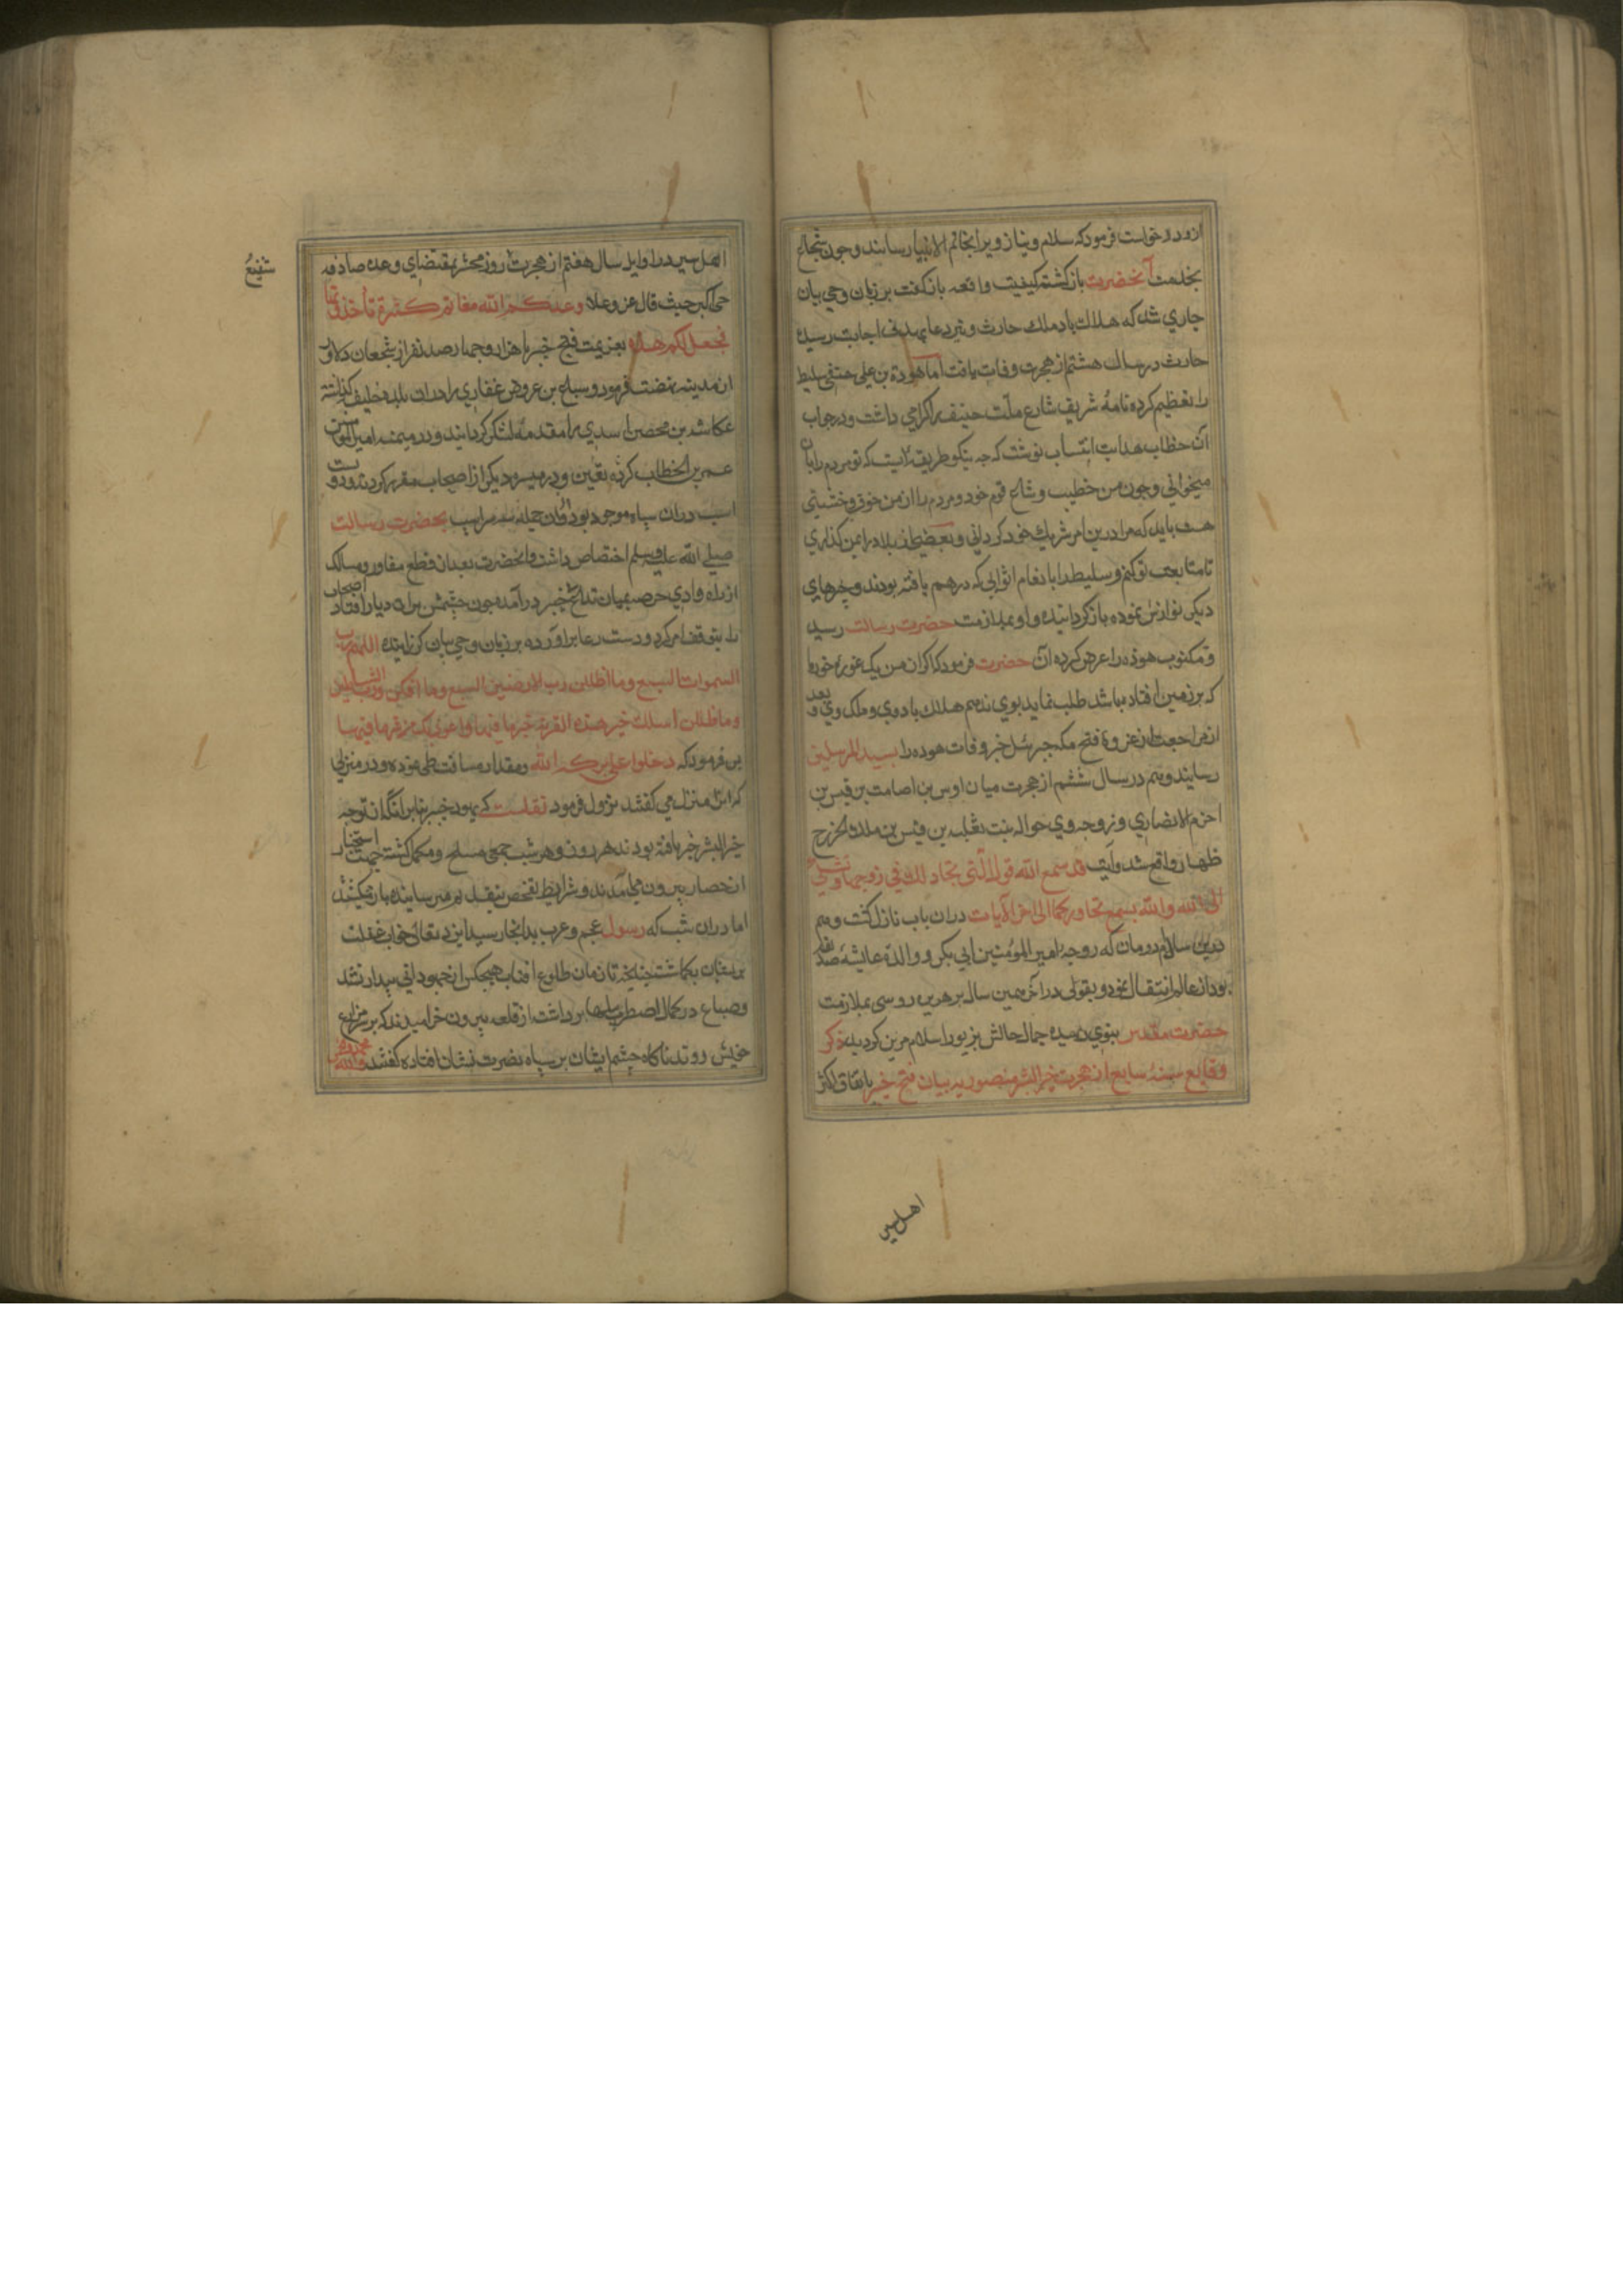 ازو درخواست فرمود که سلام و نیاز ویرا بخاتم الانبیا رسانند و چون شجاع
بخدمت آنحضرت بازگشته کیفیت واقعه بازگفت بر زبان وحی بیان
جاری شد که هلاک باد ملک حارث و تیر دعا بهدف اجابت رسیده
حارث در سال هشتم از هجرت وفات یافت اما هوذة بن علی حنفی سلیط
را تعظیم کرده نامهٔ شریف شارع ملت حنیف را گرامی داشت و در جواب
آن خطاب هدایت انتساب نوشت که چه نیکو طریقه ایست که تو مردم را بآن
میخوانی و چون من خطیب و شاعر قوم خود و مردم را از من خوفی و خشیتی
هست باید که مرا درین امر شریک خود گردانی و بعضی از بلاد را بمن گذاری
تا متابعت تو کنم و سلیط را بانعام اثوابی که در هجر بافته بودند و چیزهای
دیگر نوازش نموده بازگردانیده و او بملازمت حضرت رسالت رسید
و مکتوب هوذه را عرض کرده آن حضرت فرمود که اگر از من یک غوره خرما
که بر زمین افتاده باشد طلب نماید بوی ندهم هلاک باد وی و ملک وی و بعد
از مراجعت از غزوهٔ فتح مکه جبرئیل خبر وفات هوده را بسید المرسلین
رسانید و هم در سال ششم از هجرت میان اوس بن صامت بن قیس بن
احرم الانصاری و زوجه وی خواله بنت ثعلبه بن قیس بن مالک الخزرج
ظهار واقع شد و آیت قد سمع الله قول التی تجادلک فی زوجها و تشتکی
الی الله والله یسمع تحاورکما الی آخر الآیات در آن باب نازل گشت و هم
درین سال ام رومان که زوجه امیر المؤمنین ابی بکر و والدهٔ عایشه صدیقه
بود از عالم انتقال نمود و بقولی در آخر همین سال بو هریره دوسی بملازمت
حضرت مقدس نبوی رسیده جمال حالش بزیور اسلام مزین گردید ذکر
وقایع سنهٔ سابع از هجرت خیر البشر منصور به بیان فتح خیبر باتفاق اکثر
اهل سیر
اهل سیر در اوایل سال هفتم از هجرت روز محشر بمقتضای وعده صادقه
حی اکبر حیث قال عز و علا وعدکم الله مغانم کثیرة تأخذونها
فعجل لکم هذه بعزیمت فتح خیبر با هزار و چهارصد نفر از شجعان دلاور
از مدینه نهضت فرمود و سباع بن عروض غفاری را در آن بلده خلیفه گذاشته
عکاشه بن محصن اسدی را مقدمه لشکر گردانید و در میمنه امیر المؤمنین
عمر بن الخطاب کرده تعین و در میسره دیگر از اصحاب مقرر کردند و دویست
اسب در آن سپاه موجود بود و از آن جمله سه مراسب بحضرت رسالت
صلی الله علیه وسلم اختصاص داشت و آنحضرت بعد از قطع مفاوز و مسالک
از راه وادی حرصه میان قلاع خیبر درآمده چون چشمش بران دیار افتاد اصحاب
را بتوقف امر کرد و دست دعا برآورده بر زبان وحی بیان گذرانیده اللهم رب
السموات السبع وما اظللن رب الارضین السبع وما اقللن و رب الشیاطین
وما ظللن اسلک خیر هذه القریة خیرها فیها واعوذ بک من شرها فیها
پس فرمود که دخلوا علی برکة الله و مقدار مسافت طی نموده و در منزلی
که انرا منزل می گفتند نزول فرمود نقلست که یهود خیبر بنا بر آنکه از توجه
خیر البشر خبر یافته بودند هر روز و هر شب جمعی مسلح و مکمل گشته جهت استخبار
از حصار بیرون می آمدند و شرایط تفحص بتقدیم میرسانیده باز میگشتند
اما در آن شب که رسول عجم و عرب بدانجا رسید ایزد تعالی خواب غفلت
بریشان بگماشت چنانچه تا زمان طلوع آفتاب هیچکس از جهودانی بیدار نشد
و صباح در کمال اضطراب بیلها برداشت از قلعه بیرون خرامیدند که بر مزارع
خویش روند ناگاه چشم ایشان بر سپاه نصرت نشان افتاده گفتند محمد والله
شفیع